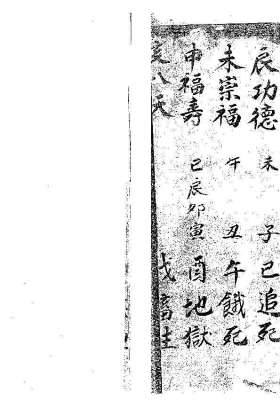 辰功德 未 子 巳追死
未崇福 午 丑 午餓死
申福壽 巳辰卯寅 酉地獄
度八天 戌畜生